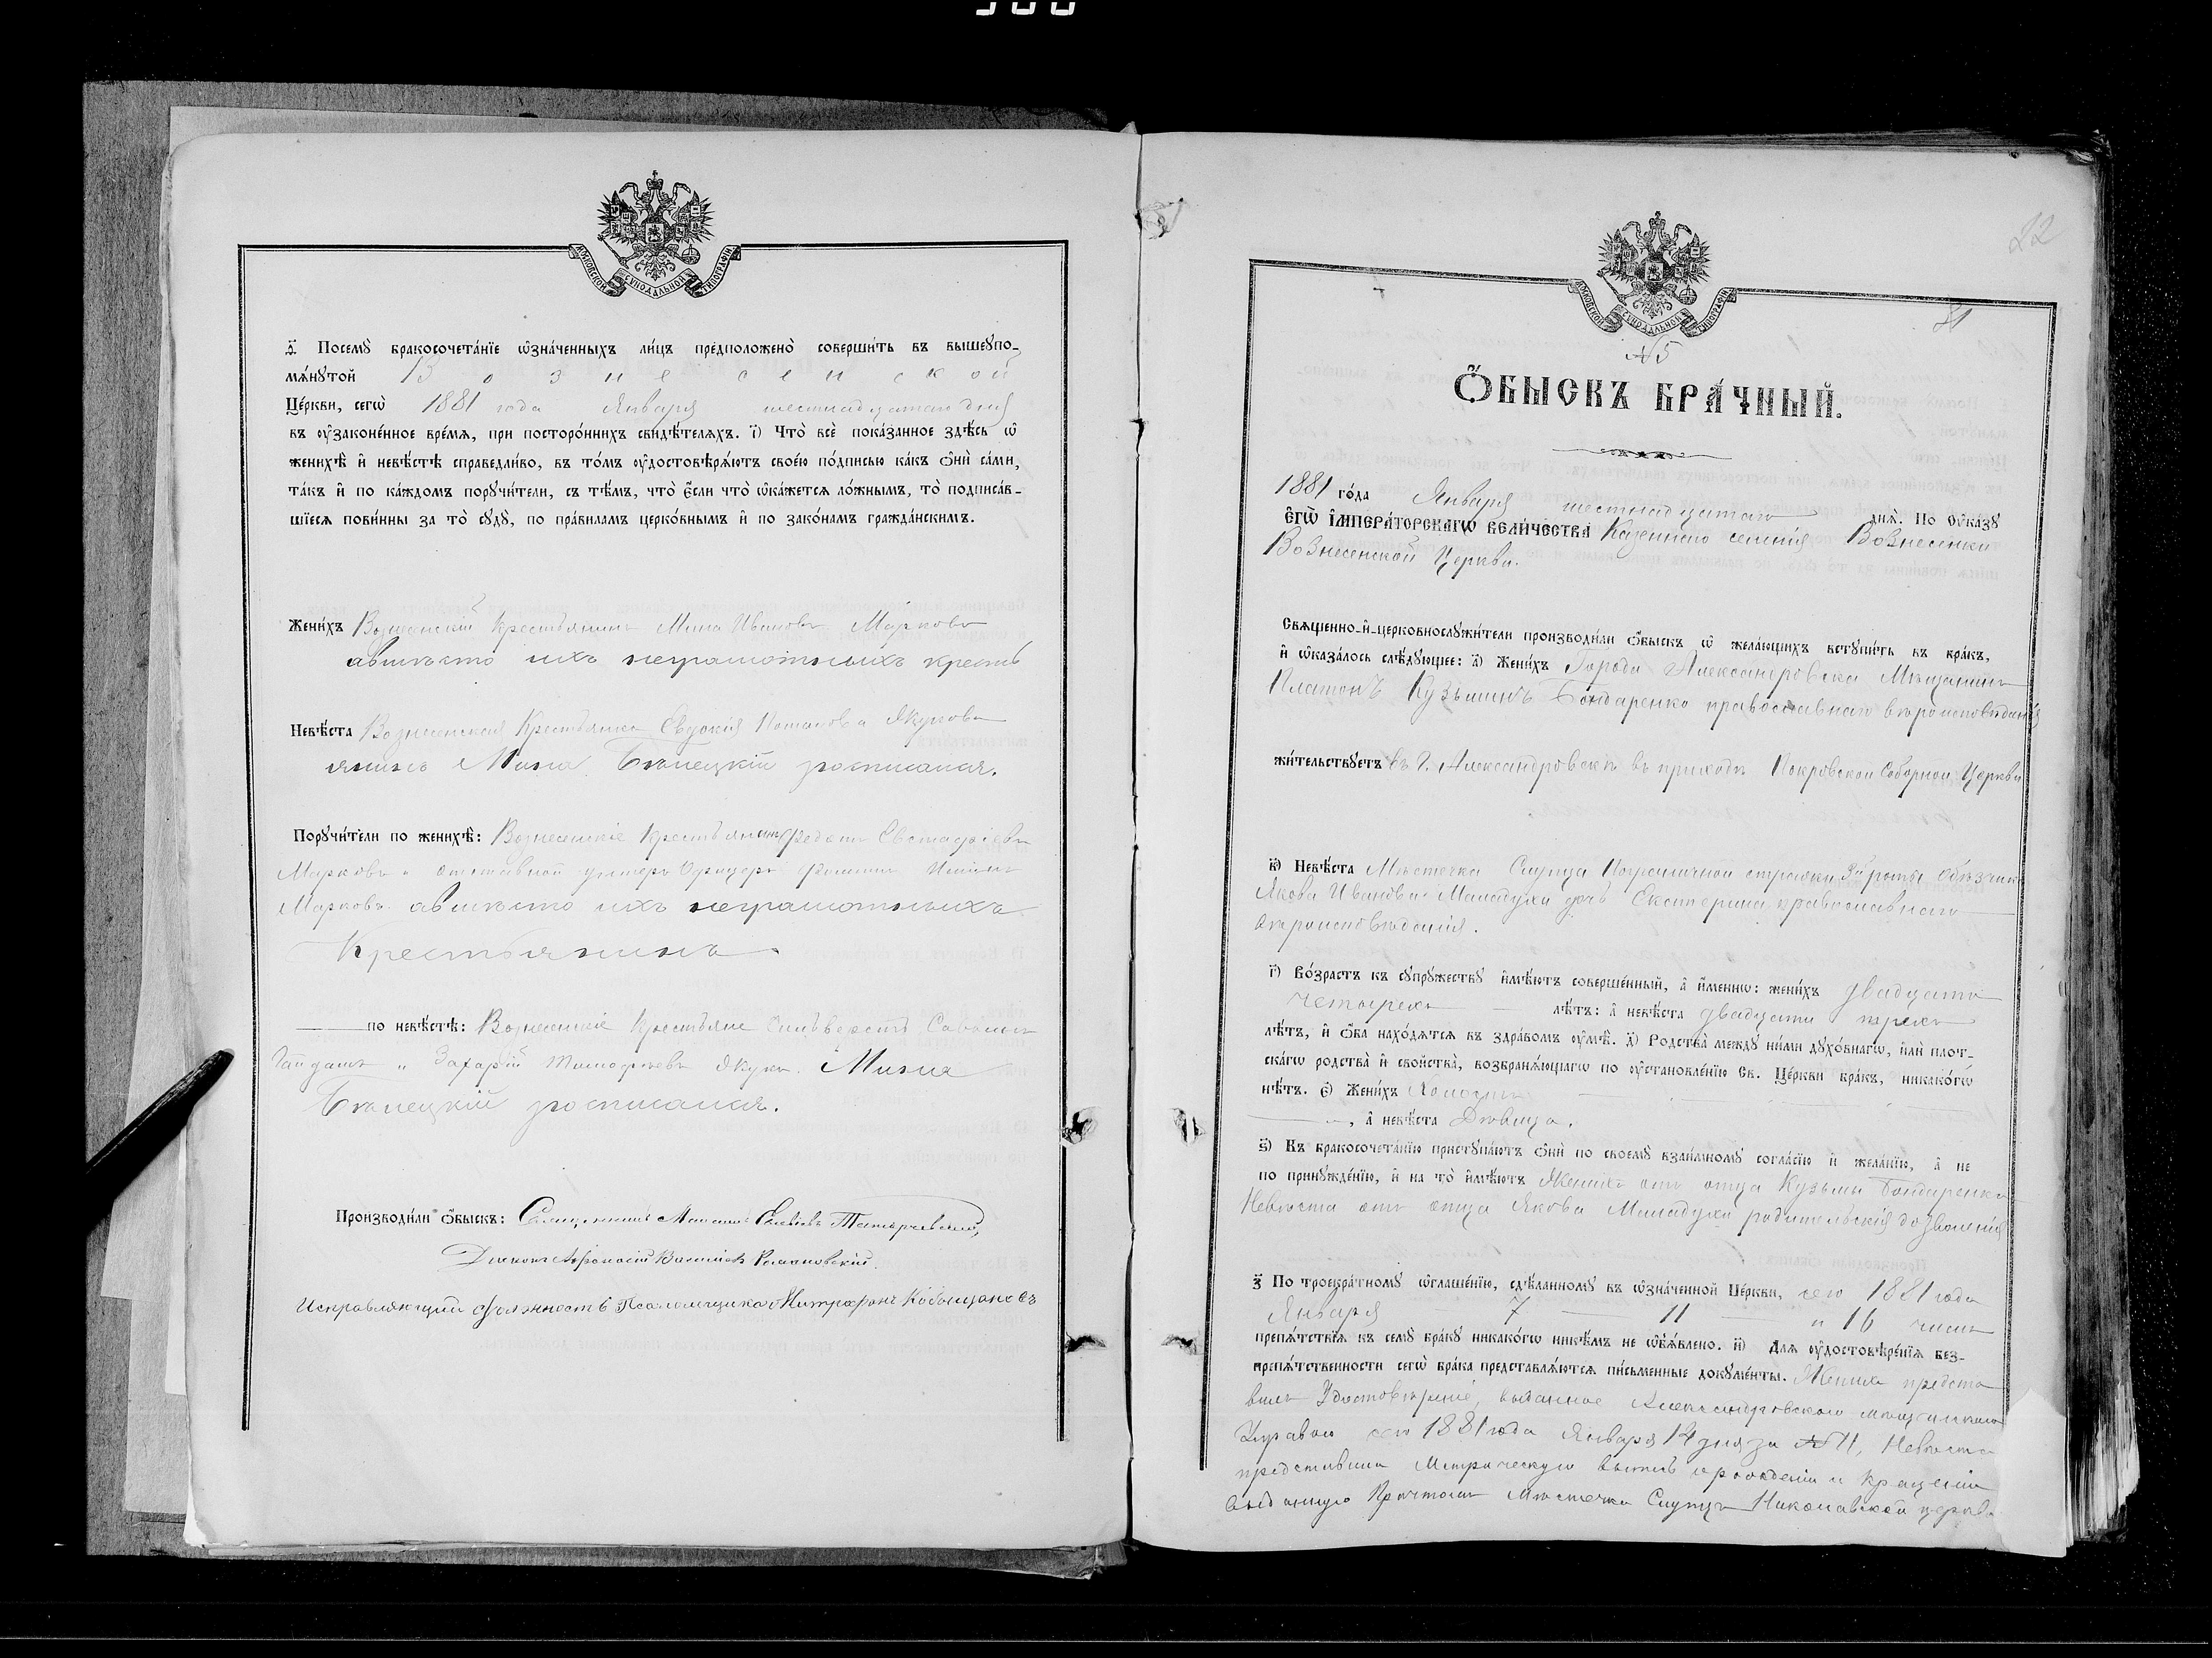 МОСКОВСКОЙ СѴНОДАЛЬНОЙ ТИПОГРАФІИ
Посемꙋ̀ бракосочета́нїе ѡ҆зна́ченныхъ ли́цъ предположено̀ соверши́ть въ вышеꙋпо-
мѧ́нꙋтой Вознесенской
Це́ркви, сегѡ̀ 1881 года Января шестнадцатаго дня
въ оу҆зако́ненное вре́мѧ, при посторо́ннихъ свидѣ́телѧхъ. і҃) Что̀ всѐ пока́занное здѣ́сь ѡ҆
женихѣ̀ и҆ невѣ́стѣ справедли́во, въ то́мъ оу҆достовѣрѧ́ютъ свое́ю по́дписью ка́къ ѻ҆нѝ са́ми,
та́къ и҆ по ка́ждомъ порꙋчи́тели, съ тѣ́мъ, что̀ є҆́сли что̀ ѡ҆ка́жетсѧ ло́жнымъ, то̀ подписа́в-
шїесѧ пови́нны за то̀ сꙋдꙋ̀, по пра́виламъ церко́внымъ и҆ по зако́намъ гражда́нскимъ.
Жени́хъ Вознесенскій Крестьянинъ Мина Ивановъ Марковъ
авмѣсто ихъ неграмотныхъ кресть
Невѣ́ста Вознесенская Крестьянка Евдокія Якукова
янинъ Мина Бѣлецкій росписался.
Порꙋчи́тели по женихѣ̀: Вознесенскіе Крестьянинъ Федотъ Евстафіевъ
Марковъ и отставной унтеръ Офицеръ Филиппъ
Марковъ авмѣсто ихъ неграмотныхъ
Крестьянинъ
по невѣ́стѣ: Вознесенскіе Крестьяне Сильверстъ
Гайдашъ и Захарій Тимофѣевъ Якукъ. Мина
Бѣлецкій росписался.
Производи́ли ѻ҆́быскъ: Священникъ
Діаконъ Афанасій Васильевъ Романовскій.
Исправляющій должность Псаломщика Митрофанъ Кобыщановъ
22
21
МОСКОВСКОЙ СѴНОДАЛЬНОЙ ТИПОГРАФІИ
№ 5
Ѻ҆́БЫСКЪ БРА́ЧНЫЙ.
1881 го́да Января шестнадцатаго днѧ̀. По оу҆ка́зꙋ
є҆гѡ̀ і҆мпера́торскагѡ вели́чества Казеннаго селенія Вознесенки
Вознесенской Церкви.
Свѧще́нно-и҆-церковнослꙋжи́тели производи́ли ѻ҆́быскъ ѡ҆ жела́ющихъ встꙋпи́ть въ бра́къ,
и҆ ѡ҆каза́лось слѣ́дꙋющее: а҃) Жени́хъ Города Александровска Мѣщанинъ
Платонъ Кузьминъ Бондаренко православнаго вѣроисповѣданія
жи́тельствꙋетъ въ г. Александровскѣ въ приходѣ Покровской Соборной Церкви
в҃) Невѣ́ста Мѣстечка Слупца Пограничной стражи 3й роты Объѣзчика
Якова Иванова Маладухи дочь Екатерина православнаго
вѣроисповѣданія.
г҃) Во́зрастъ къ сꙋпрꙋ́жествꙋ и҆мѣ́ютъ соверше́нный, а҆ и҆́меннѡ: жени́хъ двадцати
четырехъ лѣ́тъ: а҆ невѣ́ста двадцати трехъ
лѣ́тъ, и҆ ѻ҆́ба нахо́дѧтсѧ въ здра́вомъ оу҆мѣ̀. д҃) Родства̀ междꙋ̀ ни́ми дꙋхо́внагѡ, и҆лѝ плот-
ска́гѡ родства̀ и҆ свойства̀, возбранѧ́ющагѡ по оу҆становле́нїю Св. Це́ркви бра́къ, никако́гѡ
нѣ́тъ. є҃) Жени́хъ Холостъ
, а҆ невѣ́ста Дѣвица.
ѕ҃) Къ бракосочета́нїю пристꙋпа́ютъ ѻ҆нѝ по своемꙋ̀ взаи́мномꙋ согла́сїю и҆ жела́нїю, а҆ не
по принꙋжде́нїю, и҆ на то̀ и҆мѣ́ютъ Женихъ отъ отца Кузьмы Бондаренка
Невѣста отъ отца Якова Маладухи родительскія дозволенія
з҃) По троекра́тномꙋ ѡ҆глаше́нїю, сдѣ́ланномꙋ въ ѡ҆зна́ченной Це́ркви, сего 1881 года
Января 7 11 и 16 чиселъ
препѧ́тствїѧ къ семꙋ̀ бра́кꙋ никако́гѡ никѣ́мъ не ѡ҆б̾ѧ́влено. и҃) Длѧ оу҆достовѣре́нїѧ без-
препѧ́тственности сегѡ̀ бра́ка представлѧ́ютсѧ пи́сьменные докꙋме́нты. Женихъ предста
вилъ Удостовѣреніе, выданное Александровскою мѣщанскою
Управою сего 1881 года Января 14 дня за № 11, Невѣста
представила Метрическую выпись о рожденіи и крещеніи
выданную Причтомъ мѣстечка Слупца Николаевской церкви